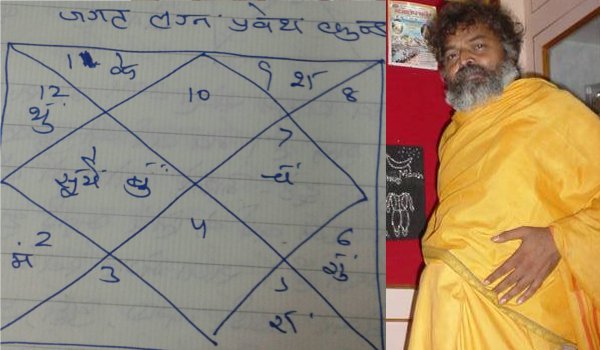 जगत लग्न प्रवेश
11 के
9 श
12
10
8
शु
7
1
सूर्य बु
चं
4
2
6
मं
3
5
रा